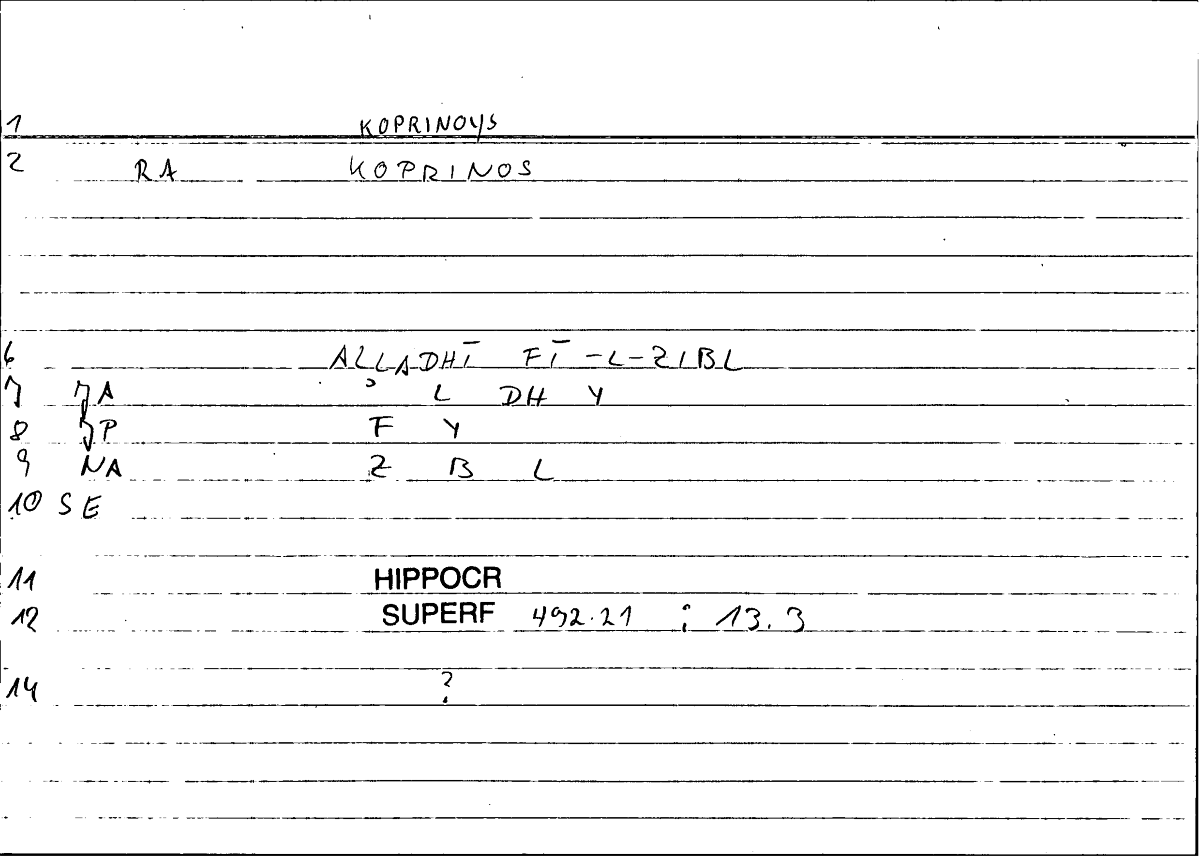 1 KOPRINOYS
2 RA KOPRINOS
6 ALLADHĪ FĪ -L-ZIBL
7 A ʾ L DH Y
8 P F Y
9 NA Z B L
10 SE
11 HIPPOCR
12 SUPERF 492.21 ; 13.3
14 ?